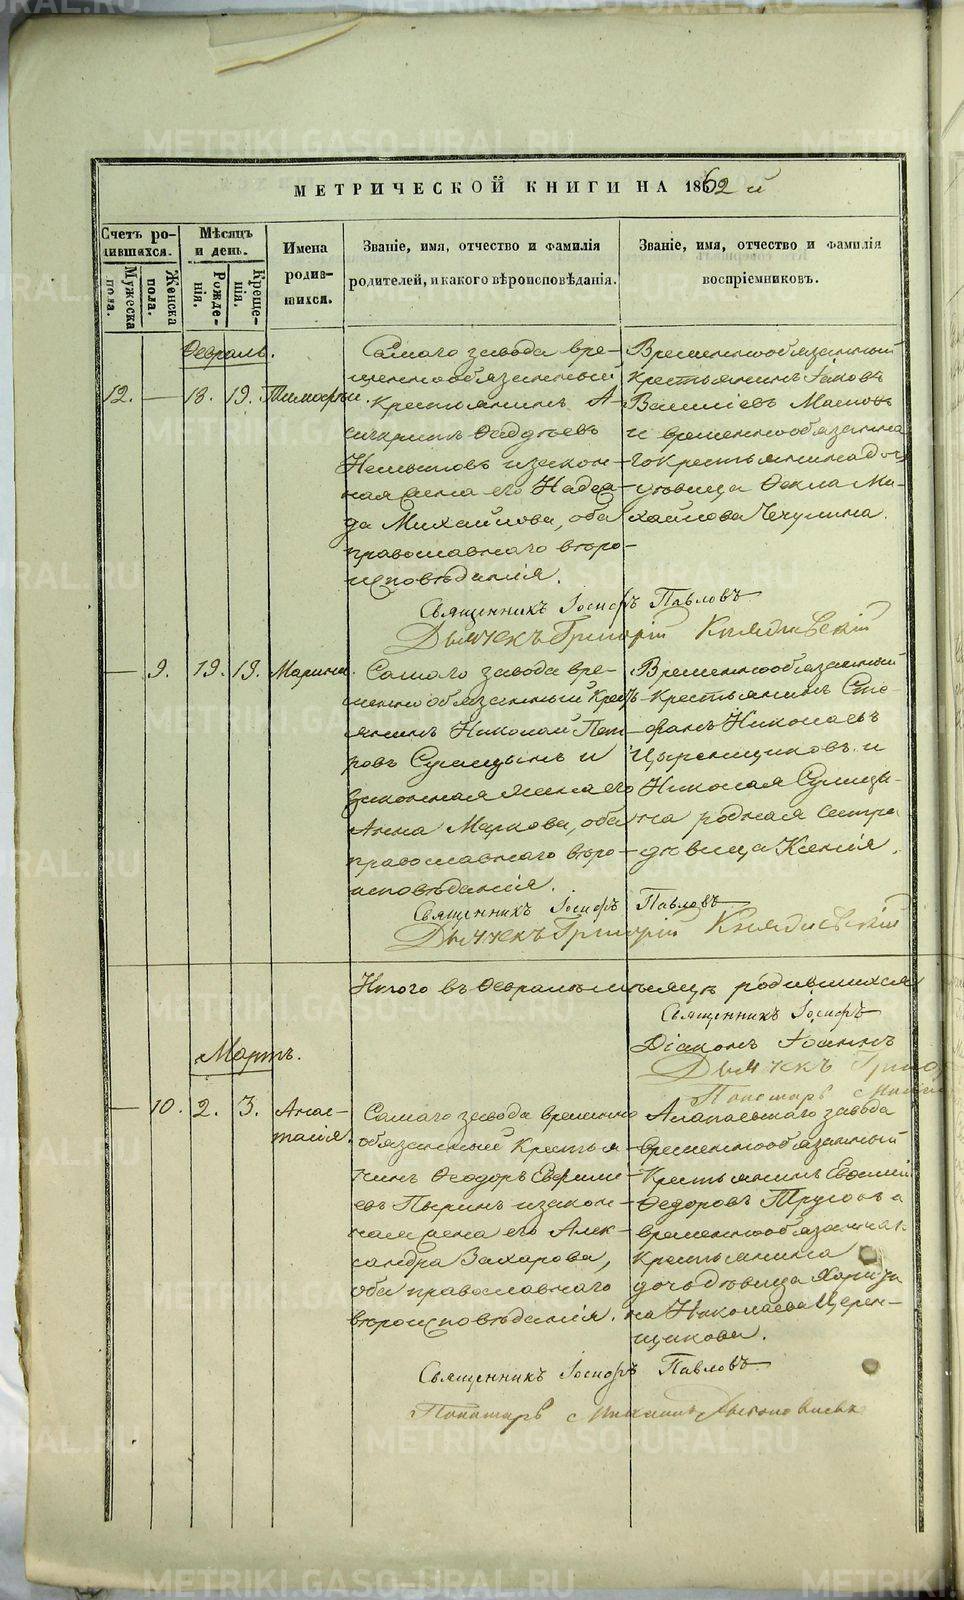 МЕТРИЧЕСКОЙ КНИГИ НА 1862 й
Счетъ ро-
дившихся.
Мѣсяцъ
и день.
Имена
родив-
шихся.
Званіе, имя, отчество и фамилія
родителей, и какого вѣроисповѣданія.
Званіе, имя, отчество и фамилія
воспріемниковъ.
Мужеска
пола.
Женска
пола.
Рожде-
нія.
Креще-
нія.
Февраль.
12. — 18. 19. Тимофѣй.
Самаго завода вре-
меннообязанный
крестьянинъ А-
Ѳаддѣевъ
и закон-
ная жена его Надеж-
да Михайлова, оба
православнаго вѣро-
исповѣданія.
Временнообязанный
крестьянинъ Іаковъ
Василіевъ
и временнообязанна-
го крестьянина дочь
дѣвица Ѳекла Ми-
хайлова Чечулина.
Священникъ Іосифъ Павловъ
Дьячекъ Григорій
— 9. 19. 19. Марина.
Самаго завода вре-
менно обязанный Кресть-
янинъ Николай Пет-
ровъ и
законная жена его
Анна Маркова, оба
православнаго вѣро-
исповѣданія.
Временнообязанный
Крестьянинъ Сте-
фанъ Николаевъ
и
Николая
на родная сестра
дѣвица Ксенія.
Священникъ Іосифъ Павловъ
Дьячекъ Григорій
Итого въ Февралѣ мѣсяцѣ родившихся
Священникъ Іосифъ
Діаконъ Іоаннъ
Дьячекъ
Пономарь
Мартъ.
— 10. 2. 3. Анас-
тасія.
Самаго завода временно
обязанный Крестья
нинъ Ѳеодоръ
Пыринъ и закон-
ная жена его Алек-
сандра Захарова,
оба православнаго
вѣроисповѣданія.
Алапаевскаго завода
временнообязанный
Крестьянинъ Евѳимій
Ѳедоровъ Трусовъ и
временнообязаннаго
Крестьянина
дочь дѣвица
на Николаева Церен-
щикова.
Священникъ Іосифъ Павловъ
Пономарь